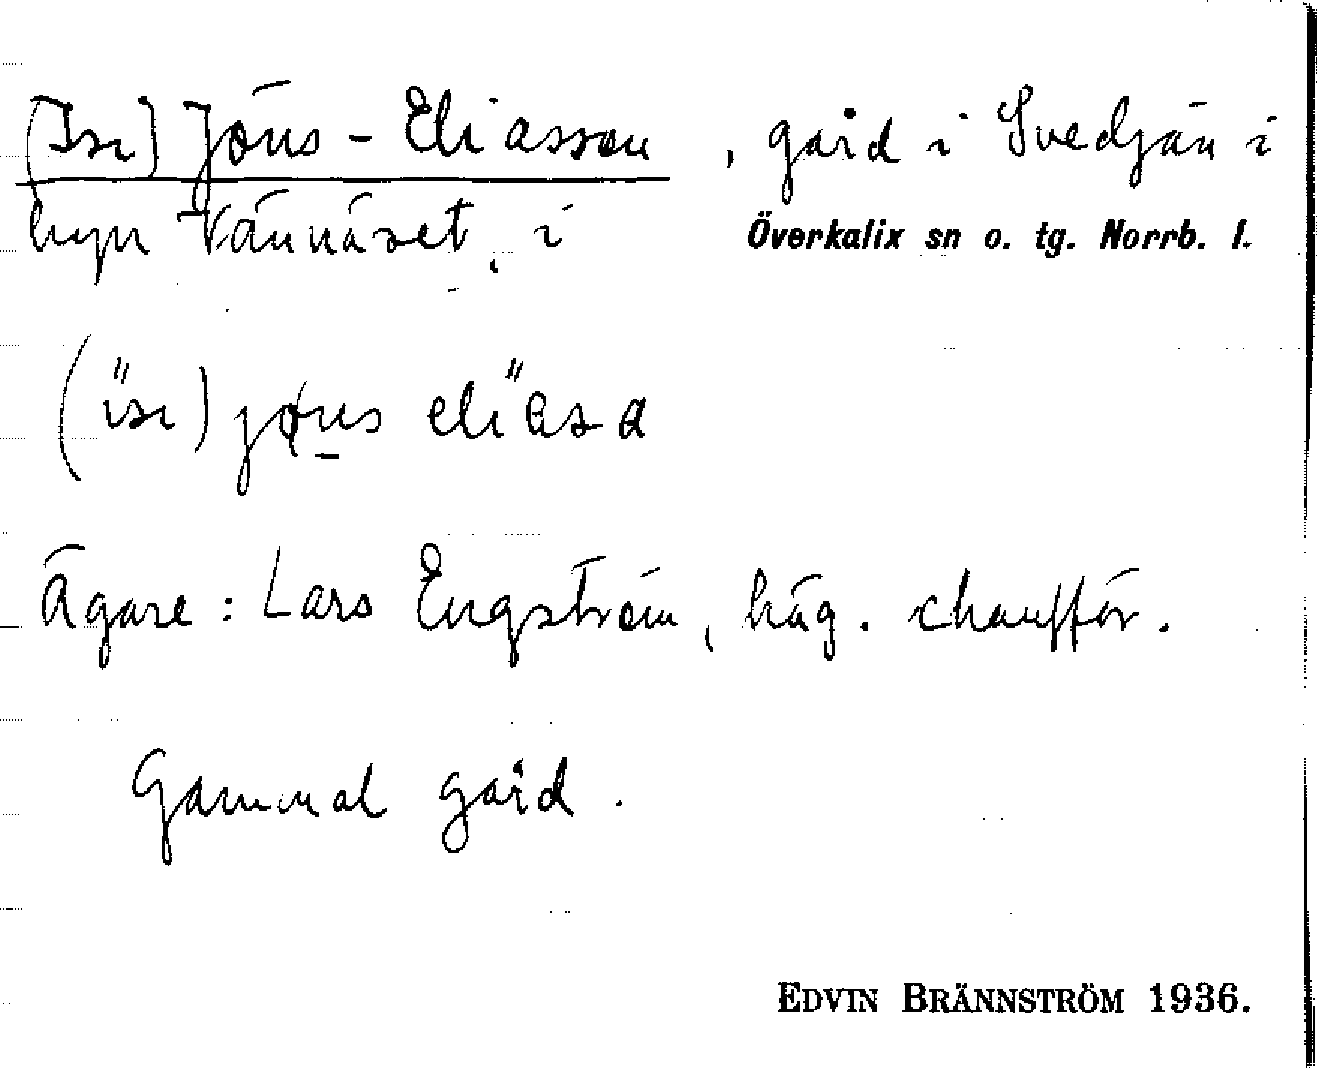 (Isr) Jöns-Eliasson, gård i Svedjan i
byn Vännäset, i Överkalix sn o. tg. Norrb. l.
(ïsr) jöns eliäsa
Ägare: Lars Engström, häg. chaufför.
Gammal gård.
EDVIN BRÄNNSTRÖM 1936.